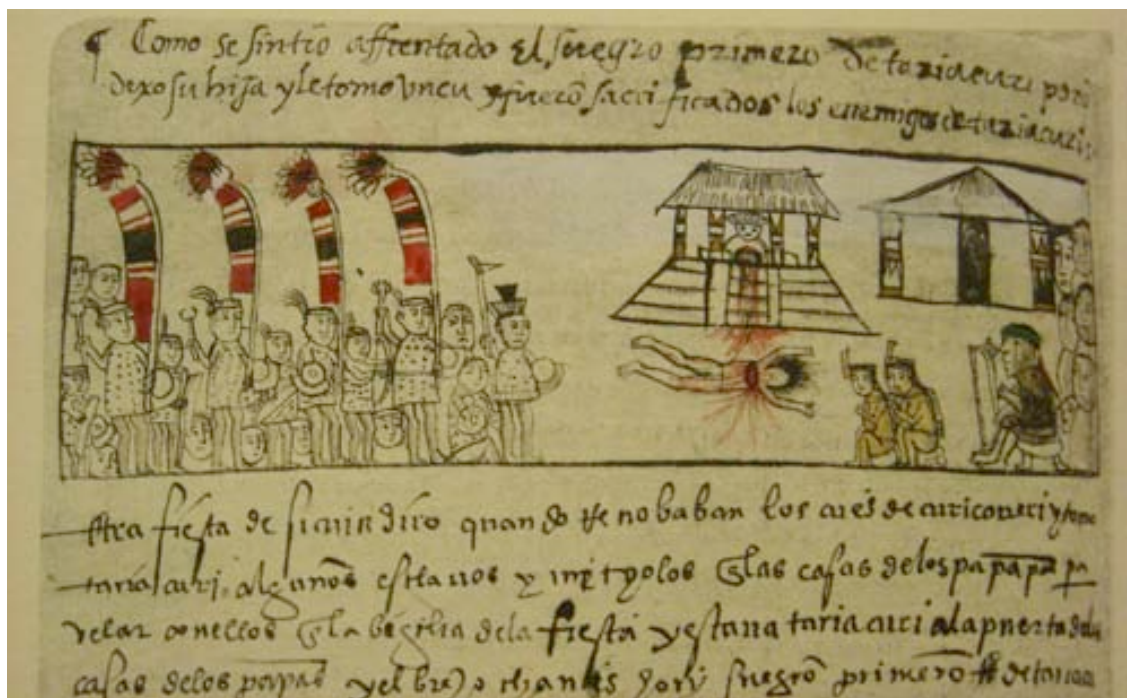 ¶ Como se sintio affrentado el suegro primero de tariacuri por
dixo su hija y le tomo un cu y fuero sacrificados los enemigos de tariacuri
otra fiesta de sicuindiro quando rrenobaban los cues de curicaueri y tomo
tariacuri algunos esclauos y metyolos en las casas de los papas pa
velar con ellos en la bigilia de la fiesta y estaua tariacuri a la puerta de las
casas de los papas y el biejo suegro primero de taria